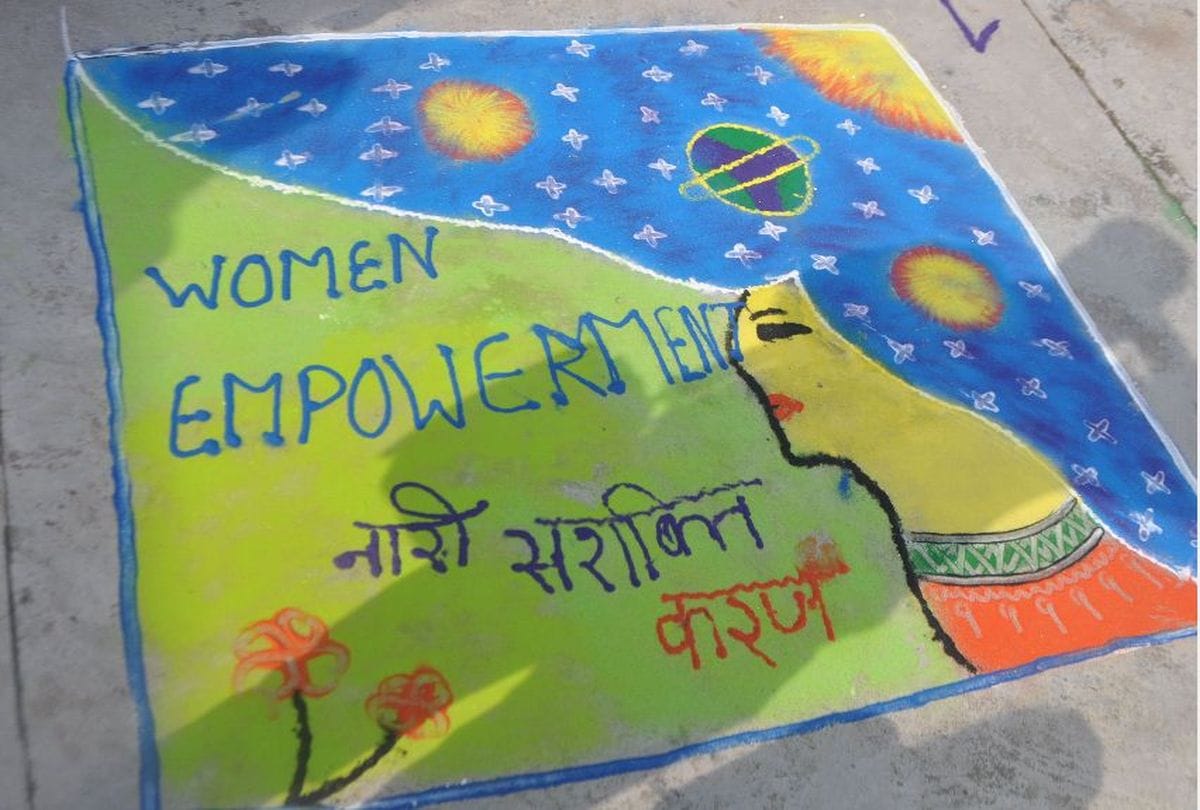 WOMEN
EMPOWERMENT
नारी सशक्ति
करण